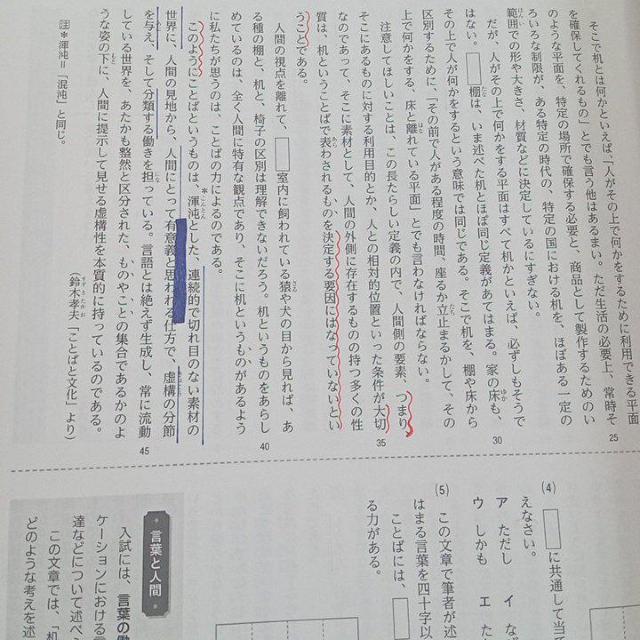 そこで机とは何かといえば、「人がその上で何かをするために利用できる平面
を確保してくれるもの」とでも言う他はあるまい。ただ生活の必要上、常時そ
のような平面を、特定の場所で確保する必要と、商品として製作するためのい
ろいろな制限が、ある特定の時代の、特定の国における机を、ほぼある一定の
範囲での形や大きさ、材質などに決定しているにすぎない。
だが、人がその上で何かをする平面はすべて机かといえば、必ずしもそうで
はない。□棚は、いま述べた机とほぼ同じ定義があてはまる。家の床も、
その上で人が何かをするという意味では同じである。そこで机を、棚や床から
区別するために、「その前で人がある程度の時間、座るか立止まるかして、その
上で何かをする、床と離れている平面」とでも言わなければならない。
注意してほしいことは、この長たらしい定義の内で、人間側の要素、つまり、
そこにあるものに対する利用目的とか、人との相対的位置といった条件が大切
なのであって、そこに素材として、人間の外側に存在するものの持つ多くの性
質は、机ということばで表わされるものを決定する要因にはなっていないとい
うことである。
人間の視点を離れて、□室内に飼われている猿や犬の目から見れば、あ
る種の棚と、机と、椅子の区別は理解できないだろう。机というものをあらし
めているのは、全く人間に特有な観点であり、そこに机というものがあるよう
に私たちが思うのは、ことばの力によるのである。
このようにことばというものは、渾沌とした、連続的で切れ目のない素材の
世界に、人間の見地から、人間にとって有意義と思われる仕方で、虚構の分節
を与え、そして分類する働きを担っている。言語とは絶えず生成し、常に流動
している世界を、あたかも整然と区分された、ものやことの集合であるかのよ
うな姿の下に、人間に提示して見せる虚構性を本質的に持っているのである。
(鈴木孝夫「ことばと文化」より)
注*渾沌=「混沌」と同じ。
25
30
35
40
45
(4) □に共通して当
えなさい。
ア ただし イ な
ウ しかも エ た
(5) この文章で筆者が述
はまる言葉を四十字以
ことばには、
る力がある。
言葉と人間
入試には、言葉の働
ケーションにおける言
達などについて述べ
この文章では、「机
どのような考えを述